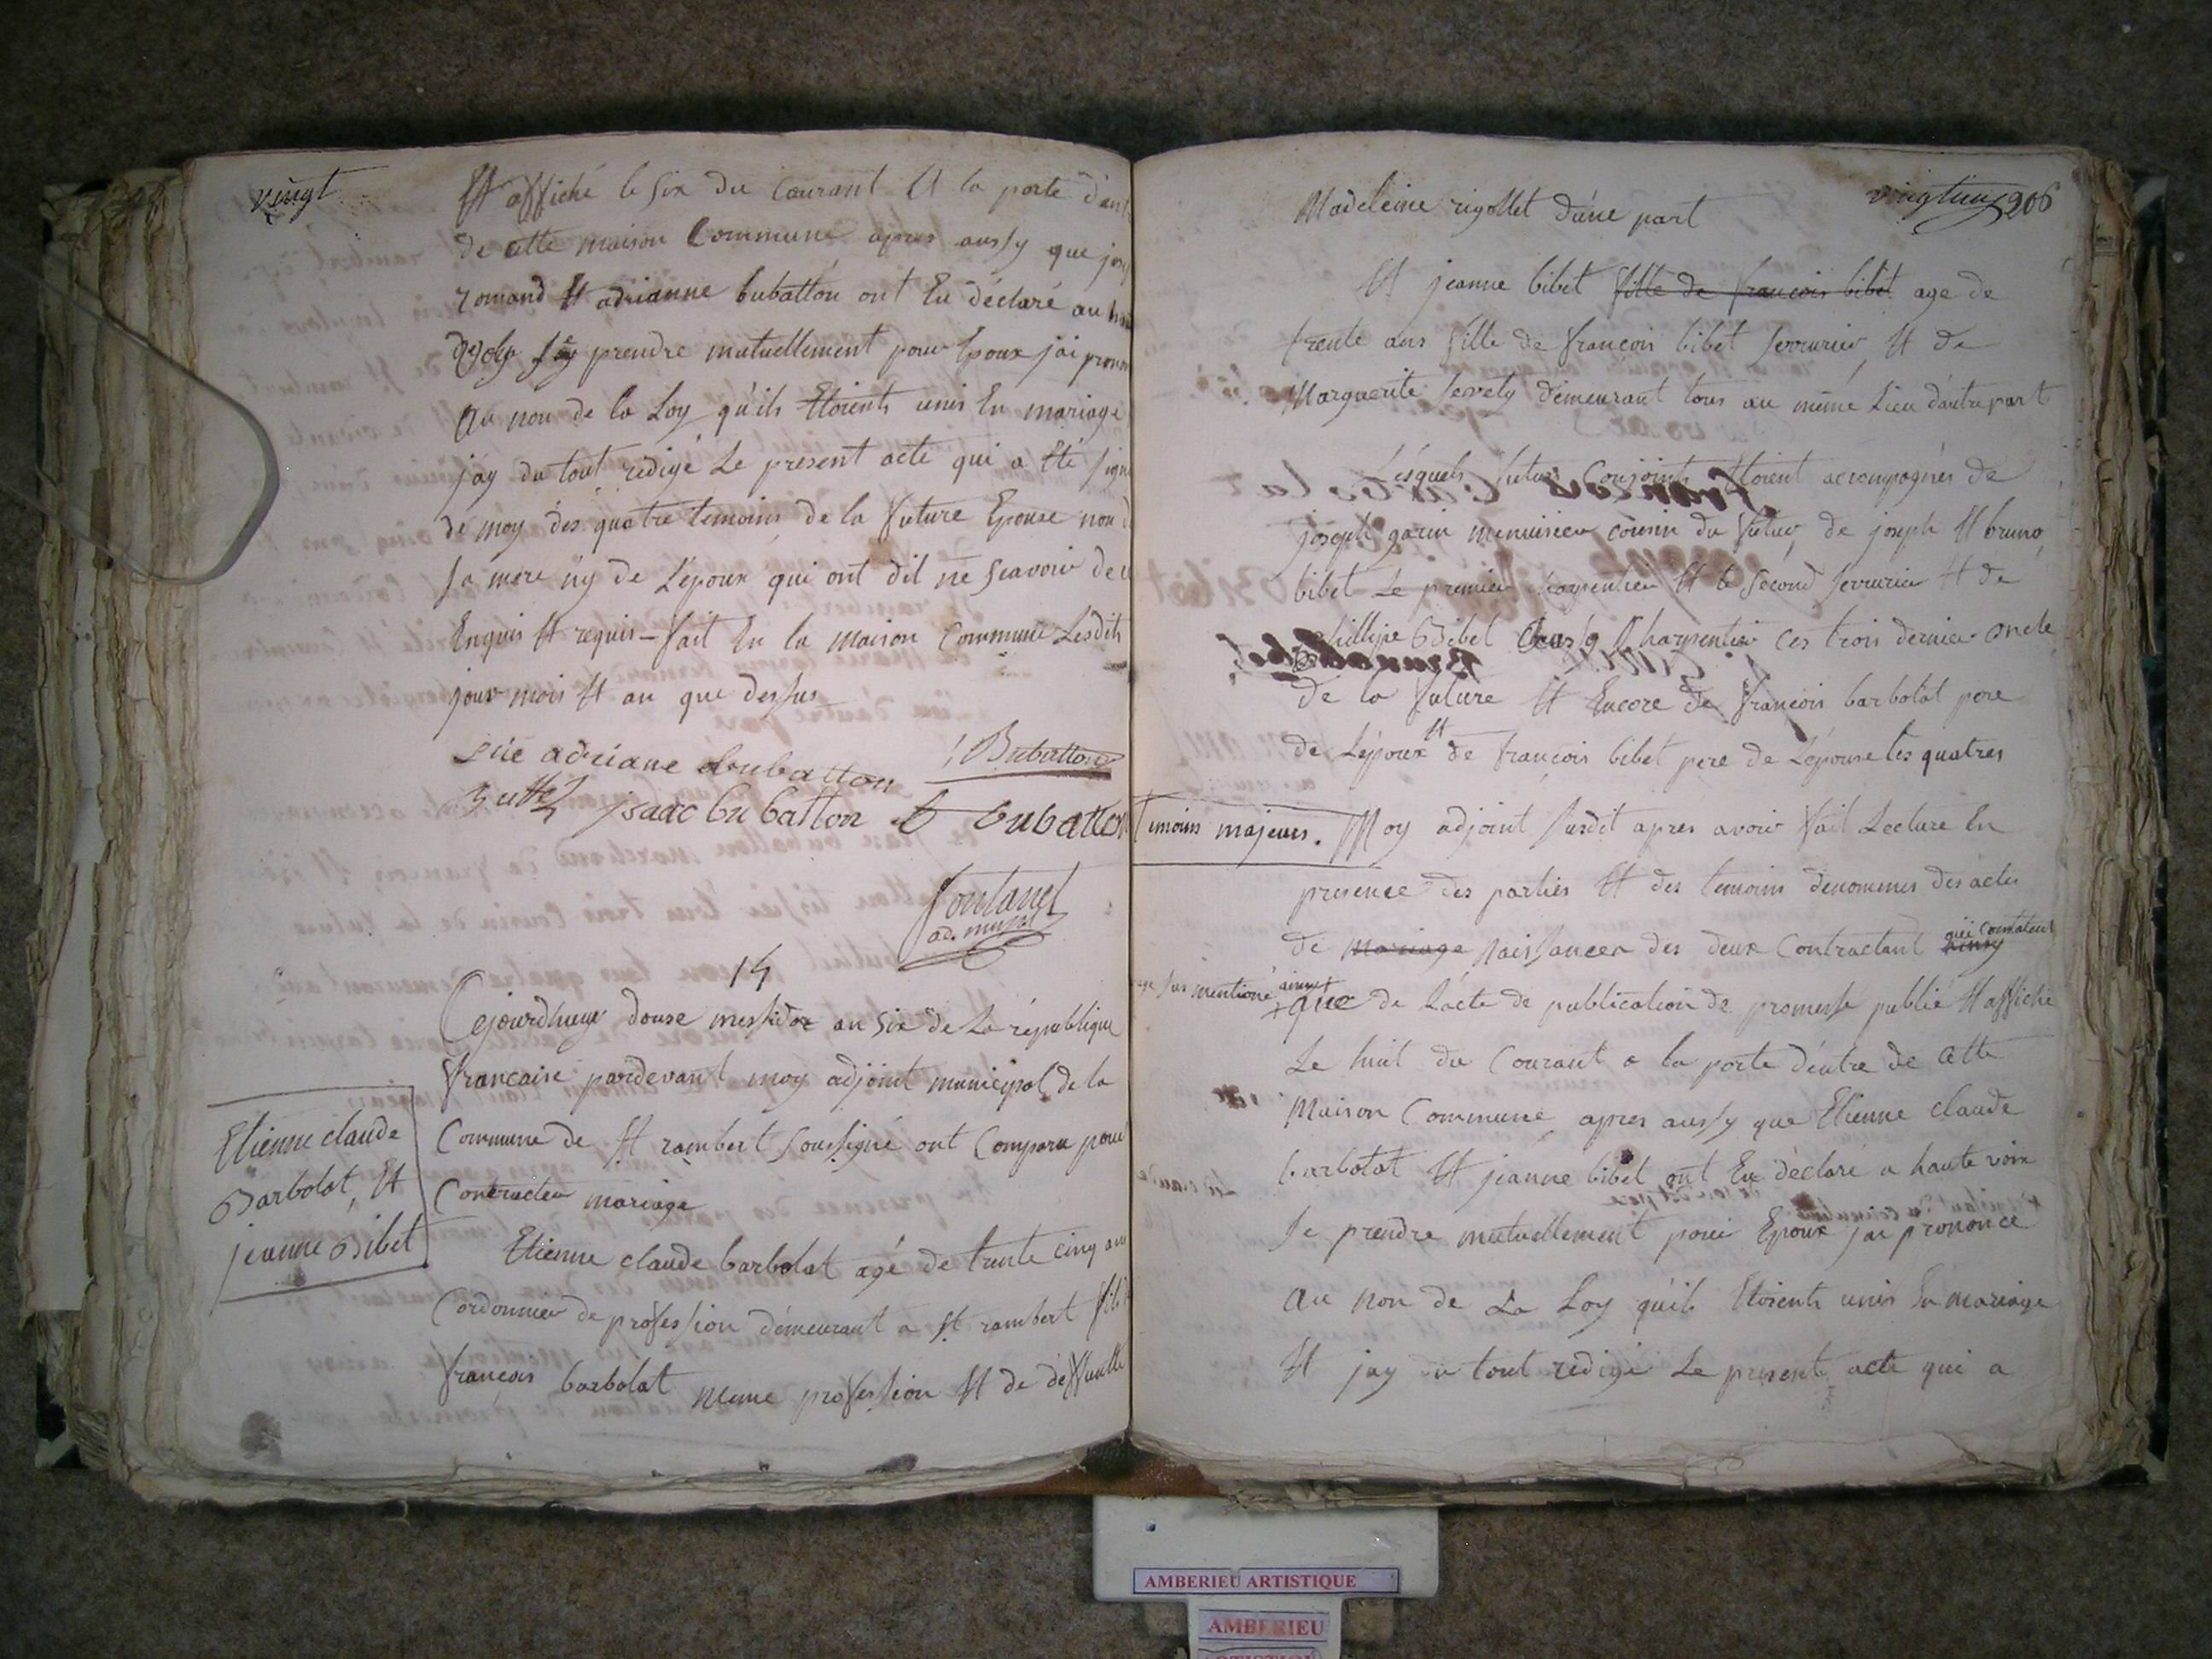 vingt
Et affiché le six du Courant Et la porte d'ent
de cette maison Commune apres aussy que jos
romand Et adrianne bubatton ont Eu déclaré au h
prendre mutuellement pour Epoux j'ai pronon
Au non de la Loy qu'ils Etoients unis En mariage
j'ay du tout redigé Le present acte qui a Eté signé
de moy des quatre temoins de la future Epouse non d
sa mere ny de L'epoux qui ont dit ne scavoir de
Enquis Et requis – fait En la maison Commune Lesdits
jour mois Et an que dessus
adriane bubatton
Bubatton
isaac bubatton
bubatton
fontanel
ad. mupal
14
Cejourdhuy douse messidor an six de La république
francaise pardevant moy adjoint municipal de la
Commune de St rambert soussigné ont Comparu pour
Contracter mariage
Etienne claude
Barbolat, Et
jeanne Bibet
Etienne claude barbolat agé de trente cinq ans
Cordonnier de profession démeurant a St rambert fils
francois barbolat meme profession Et de deffunte
vingtun 206
Madeleine rigollet d'une part
Et jeanne bibet fille de francois bibet age de
trente ans fille de francois bibet serrurier Et de
Marguerite servety démeurant tous au même Lieu d'autre part
Lesquels futurs Conjoints Etoient accompagnés de
joseph garin menuisier cousin du futur, de joseph Et bruno
bibet Le premier charpentier Et le second serrurier Et de
phillipe Bibet aussy Charpentier ces trois dernier oncle
de la future Et Encore de francois barbolat pere
de L'époux Et de francois bibet pere de L'épouse les quatres
temoins majeurs. Moy adjoint susdit apres avoir fait Lecture En
presence des parties Et des temoins denommes des actes
de mariage naissances des deux Contractant qui constatent
sus mentioné ainsy que de L'acte de publication de promesse publié Et affiché
Le huit du Courant a la porte d'entre de cette
Maison Commune apres aussy que Etienne claude
barbolat Et jeanne bibet ont Eu déclaré a haute voix
Se prendre mutuellement pour Epoux jai prononcé
Au non de La Loy qu'ils Etoients unis En mariage
Et jay du tout redigé Le present acte qui a
AMBERIEU ARTISTIQUE
AMBERIEU